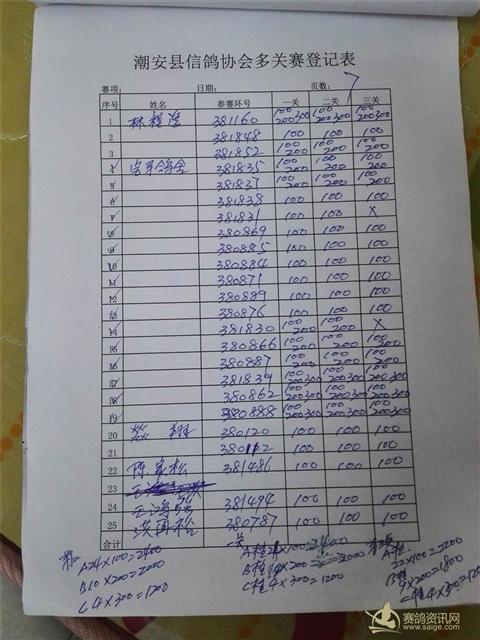 潮安县信鸽协会多关赛登记表
赛项： 日期： 页数： 7
序号 姓名 参赛环号 一关 二关 三关
1 林 381160 100 200 300 100 200 300 100 200 300
2 381848 100 100 100
3 381852 100 200 100 200 100 200
4 381835 100 200 100 200 100 200
5 381837 100 200 100 200 100 200
6 381838 100 100 100
7 381831 100 100 X
8 380869 100 100 100
9 380885 100 100 100
10 380884 100 100 100
11 380871 100 100 100
12 380889 100 100 100
13 380876 100 100 100
14 381830 100 200 100 200 X
15 380866 100 200 100 200 100 300
16 380887 100 200 100 200 100 200
17 381839 100 200 300 100 200 300 100 200 300
18 380862 100 200 300 100 200 300 100 200 300
19 380888 100 200 300 100 200 300 100 200 300
20 380120 100 100 100
21 380112 100 100 100
22 陈 松 381486 100 100 100
23
24 王 381494 100 100 100
25 洪 380787 100 100 100
合计
A24×100=2400
B10×200=2000
C4×300=1200
C组4×300=1200
22×100=2200
9×200=1800
赛鸽资讯网
www.saige.com